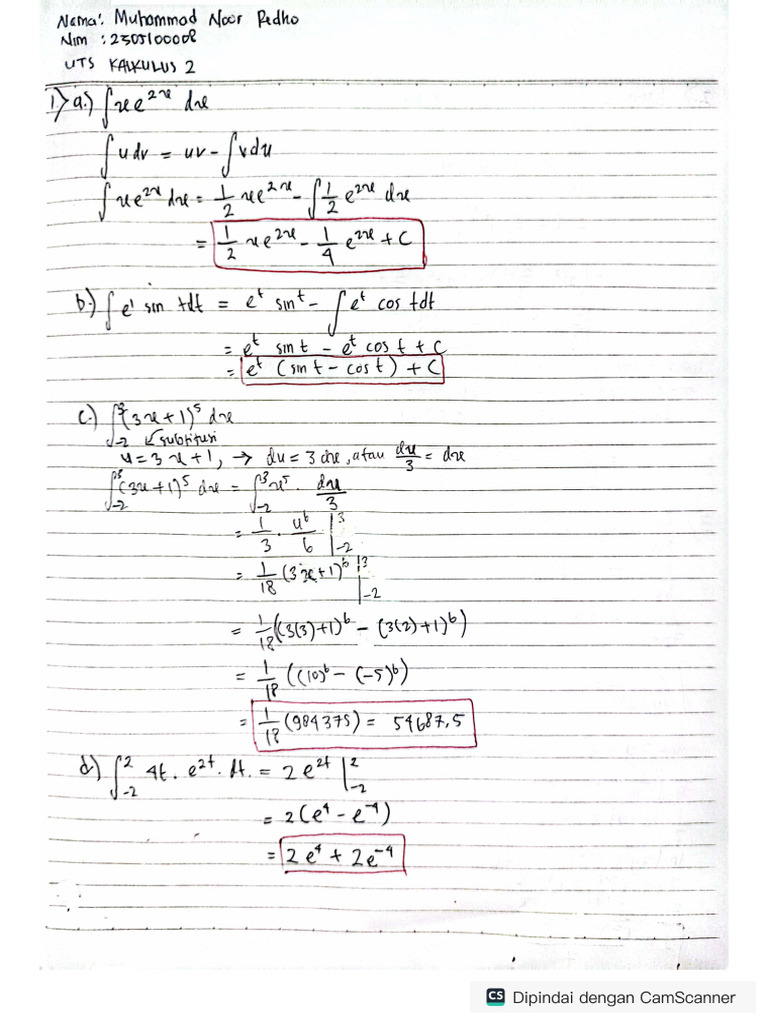 Nama: Muhammad Noor Ridho
Nim : 2305100008
UTS KALKULUS 2
1.) a.) ∫xe^2x dx
∫u dv = uv - ∫v du
∫xe^2x dx = 1/2 xe^2x - ∫1/2 e^2x dx
= 1/2 xe^2x - 1/4 e^2x + C
b.) ∫e^t sin t dt = e^t sin t - ∫e^t cos t dt
= e^t sin t - e^t cos t + C
= e^t (sin t - cos t) + C
c.) ∫_-2^3 (3x+1)^5 dx
↙ subtitusi
u = 3x+1, → du = 3 dx, atau du/3 = dx
∫_-2^3 (3x+1)^5 dx = ∫_-2^3 u^5 . du/3
= 1/3 . u^6/6 |_-2^3
= 1/18 (3x+1)^6 |_-2^3
= 1/18 ((3(3)+1)^6 - (3(2)+1)^6)
= 1/18 ((10)^6 - (-5)^6)
= 1/18 (984375) = 54687,5
d.) ∫_-2^2 4t . e^2t . dt. = 2e^2t |_-2^2
= 2(e^4 - e^-4)
= 2e^4 + 2e^-4
CS Dipindai dengan CamScanner